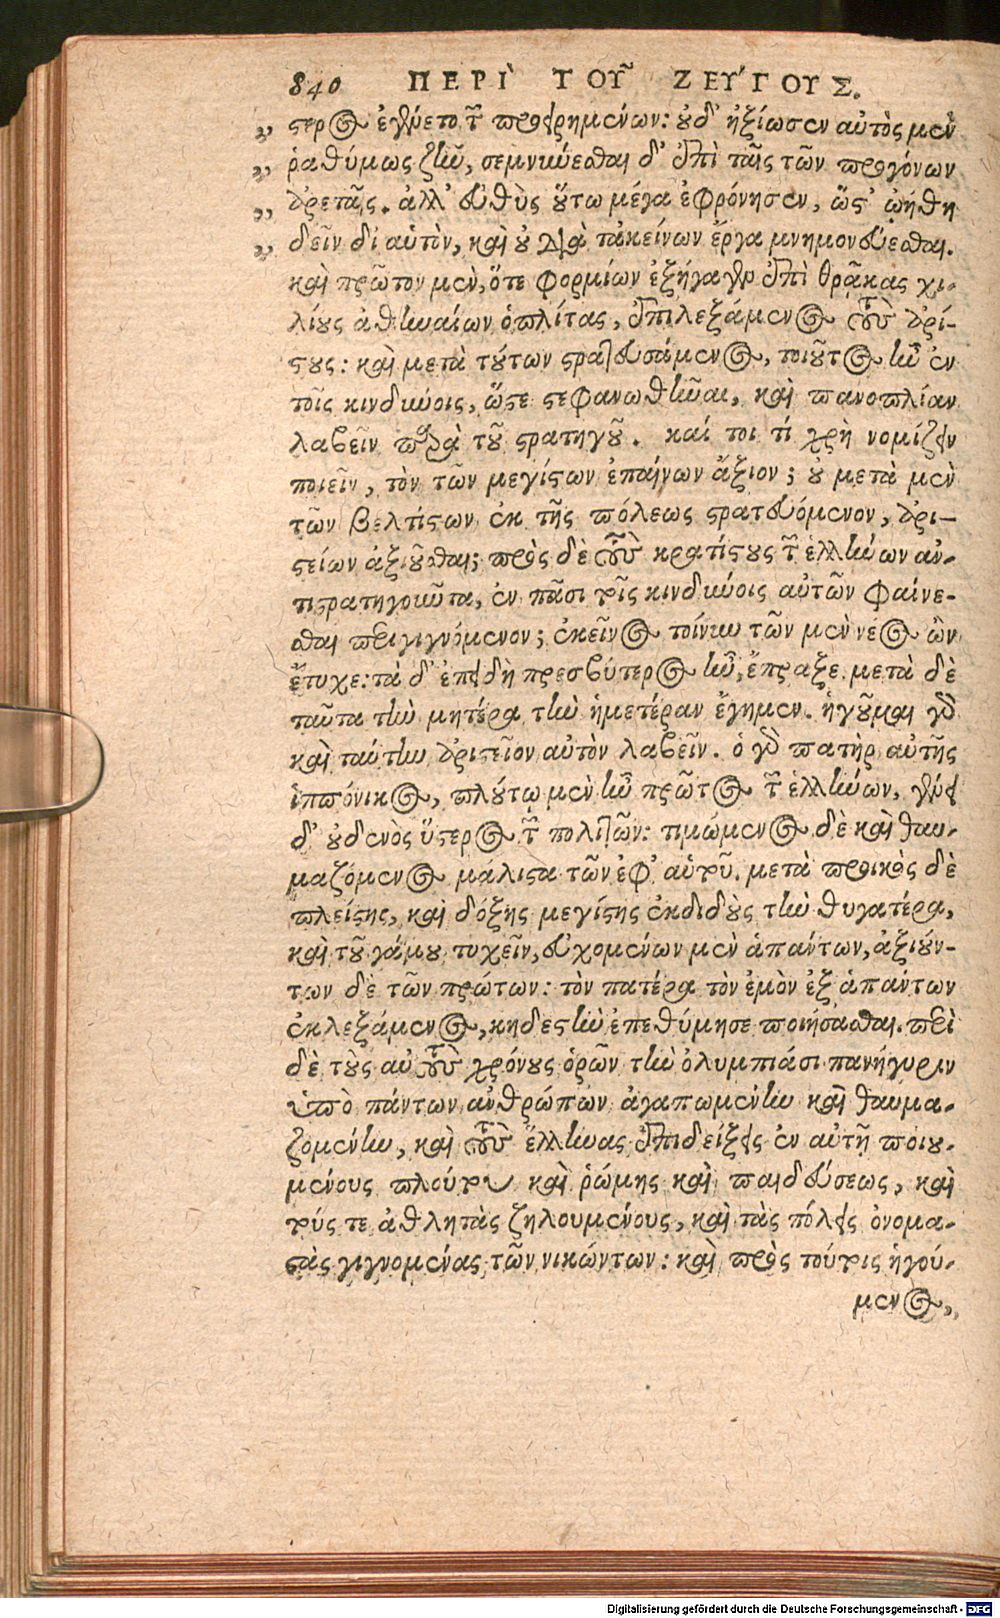 840 ΠΕΡΙ ΤΟΥ͂ ΖΕΥΓΟΥΣ.
„ στερος ἐγένετο τῶν προειρημένων: οὐδ' ἠξίωσεν αὐτὸς μὲν
„ ῥαθύμως ζῆν, σεμνύνεσθαι δ' ἐπὶ ταῖς τῶν προγόνων
„ ἀρεταῖς. ἀλλ' εὐθὺς οὕτω μέγα ἐφρόνησεν, ὥστ' ᾠήθη
„ δεῖν δι' αὑτὸν, καὶ οὐ διὰ τἀκείνων ἔργα μνημονεύεσθαι.
καὶ πρῶτον μὲν, ὅτε φορμίων ἐξήγαγεν ἐπὶ θρᾴκας χι-
λίους ἀθηναίων ὁπλίτας, ἐπιλεξάμενος τοὺς ἀρί-
στους: καὶ μετὰ τούτων στρατευσάμενος, τοιοῦτος ἦν ἐν
τοῖς κινδύνοις, ὥστε στεφανωθῆναι, καὶ πανοπλίαν
λαβεῖν παρὰ τοῦ στρατηγοῦ. καί τοι τί χρὴ νομίζειν
ποιεῖν, τὸν τῶν μεγίστων ἐπαίνων ἄξιον; οὐ μετὰ μὲν
τῶν βελτίστων ἐκ τῆς πόλεως στρατευόμενον, ἀρι-
στείων ἀξιοῦσθαι; πρὸς δὲ τοὺς κρατίστους τῶν ἑλλήνων ἀν-
τιστρατηγοῦντα, ἐν πᾶσι τοῖς κινδύνοις αὐτῶν φαίνε-
σθαι περιγιγνόμενον; ἐκεῖνος τοίνυν τῶν μὲν νέος ὢν
ἔτυχε: τὰ δ' ἐπειδὴ πρεσβύτερος ἦν, ἔπραξε. μετὰ δὲ
ταῦτα τὴν μητέρα τὴν ἡμετέραν ἔγημεν. ἡγοῦμαι γὰρ
καὶ ταύτην ἀριστεῖον αὐτὸν λαβεῖν. ὁ γὰρ πατὴρ αὐτῆς
ἱππόνικος, πλούτῳ μὲν ἦν πρῶτος τῶν ἑλλήνων, γένει
δ' οὐδενὸς ὕστερος τῶν πολιτῶν: τιμώμενος δὲ καὶ θαυ-
μαζόμενος μάλιστα τῶν ἐφ' αὑτοῦ. μετὰ προικὸς δὲ
πλείστης, καὶ δόξης μεγίστης ἐκδιδοὺς τὴν θυγατέρα,
καὶ τοῦ γάμου τυχεῖν, εὐχομένων μὲν ἁπάντων, ἀξιούν-
των δὲ τῶν πρώτων: τὸν πατέρα τὸν ἐμὸν ἐξ ἁπάντων
ἐκλεξάμενος, κηδεστὴν ἐπεθύμησε ποιήσασθαι. περὶ
δὲ τοὺς αὐτοὺς χρόνους ὁρῶν τὴν ὀλυμπιάσι πανήγυριν
ὑπὸ πάντων ἀνθρώπων ἀγαπωμένην καὶ θαυμα-
ζομένην, καὶ τοὺς ἕλληνας ἐπιδείξεις ἐν αὐτῇ ποιου-
μένους πλούτου καὶ ῥώμης καὶ παιδεύσεως, καὶ
τούς τε ἀθλητὰς ζηλουμένους, καὶ τὰς πόλεις ὀνομα-
στὰς γιγνομένας τῶν νικώντων: καὶ πρὸς τούτοις ἡγού-
μενος,
Digitalisierung gefördert durch die Deutsche Forschungsgemeinschaft - DFG